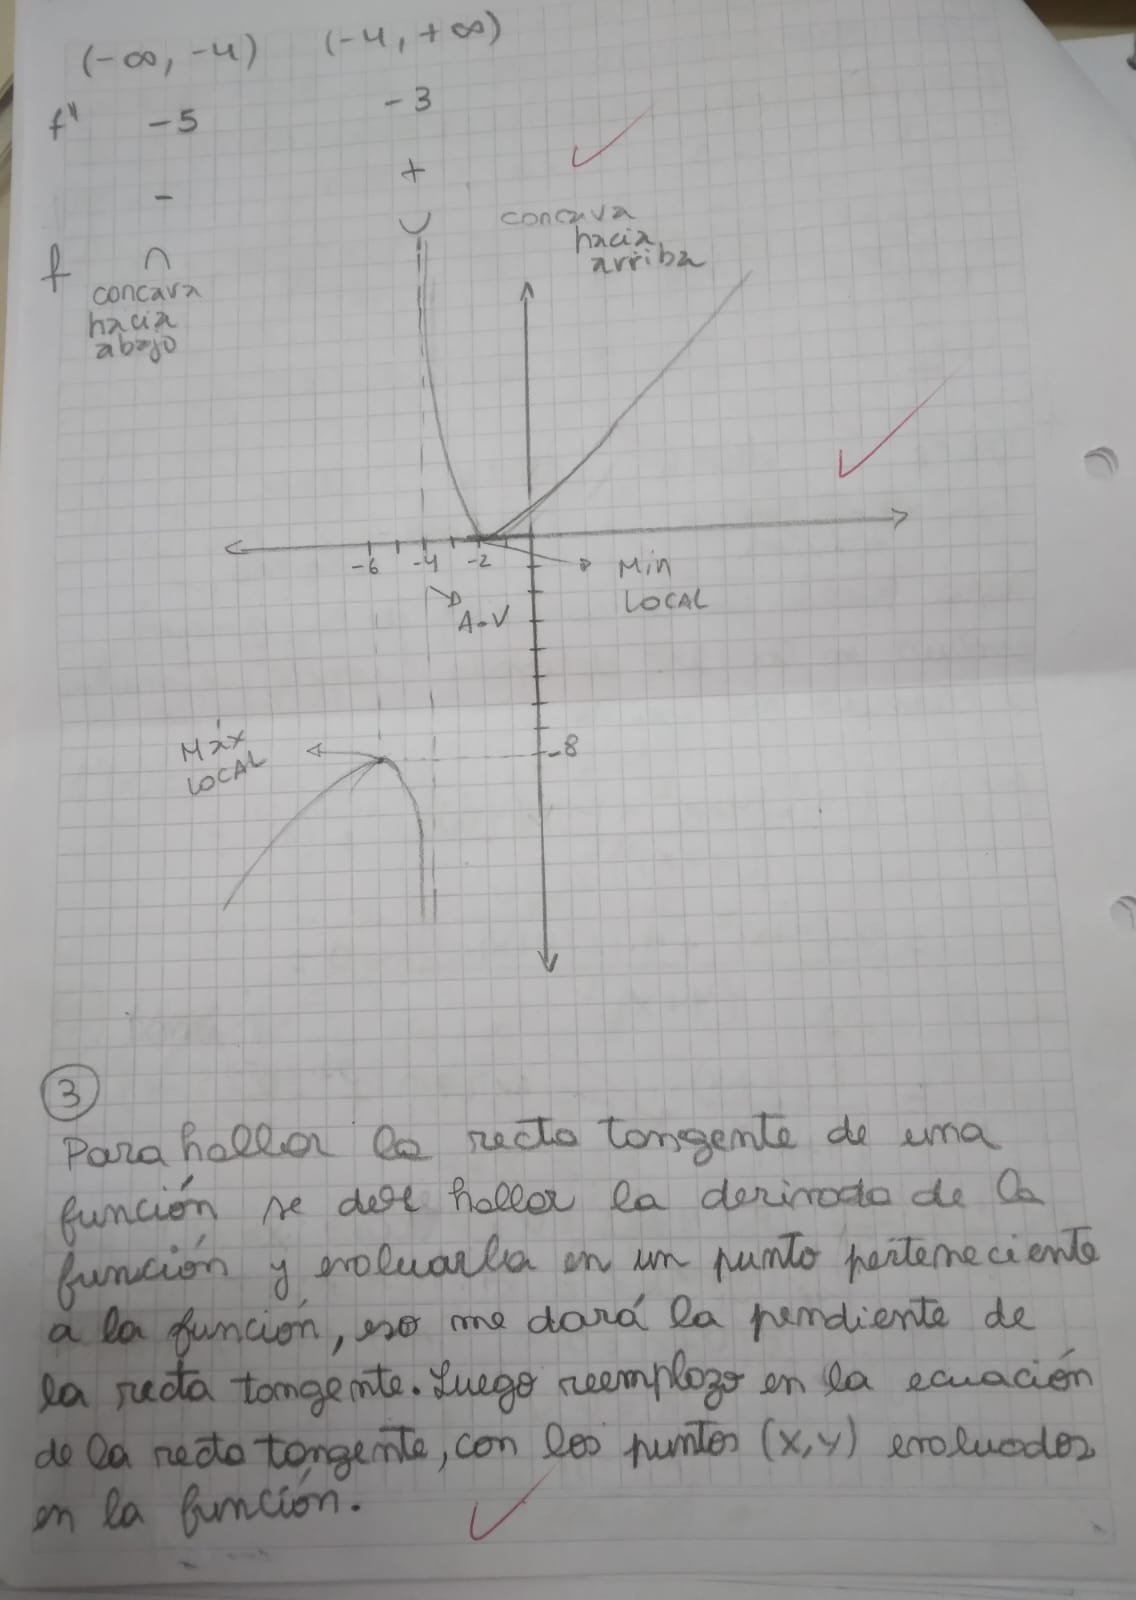 (-∞, -4) (-4, +∞)
f'' -5 -3
- +
f ∩ ∪
concava
hacia
abajo
concava
hacia
arriba
-6 -4 -2
A.V
Min
LOCAL
Máx
LOCAL
-8
3
Para hallar la recta tangente de una
función se debe hallar la derivada de la
función y evaluarla en un punto perteneciente
a la función, eso me dará la pendiente de
la recta tangente. Luego reemplazo en la ecuación
de la recta tangente, con los puntos (x,y) evaluados
en la función.